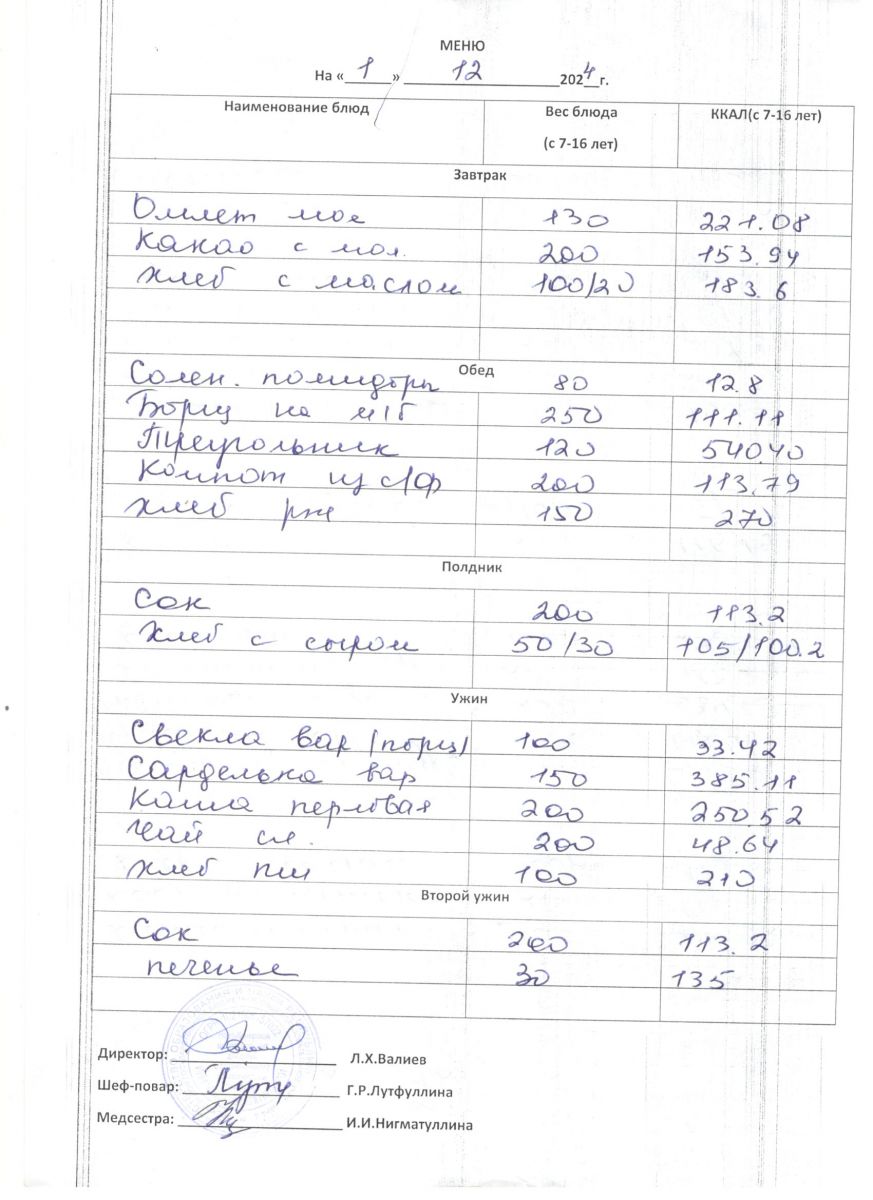 МЕНЮ
На «1» 12 2024 г.
Наименование блюд Вес блюда (с 7-16 лет) ККАЛ(с 7-16 лет)
Завтрак
Омлет мол 130 221.08
Какао с мол. 200 153.94
Хлеб с маслом 100/20 183.6
Обед
Солен. помидоры 80 12.8
Борщ на м/б 250 111.11
Треугольник 120 540.40
Компот из с/ф 200 113.79
Хлеб рж 150 270
Полдник
Сок 200 113.2
Хлеб с сыром 50/30 105/100.2
Ужин
Свекла вар (порц) 100 93.42
Сарделька вар 150 385.11
Каша перловая 200 250.52
Чай сл. 200 48.64
Хлеб пш 100 210
Второй ужин
Сок 200 113.2
печенье 30 135
Директор: Л.Х.Валиев
Шеф-повар: Г.Р.Лутфуллина
Медсестра: И.И.Нигматуллина